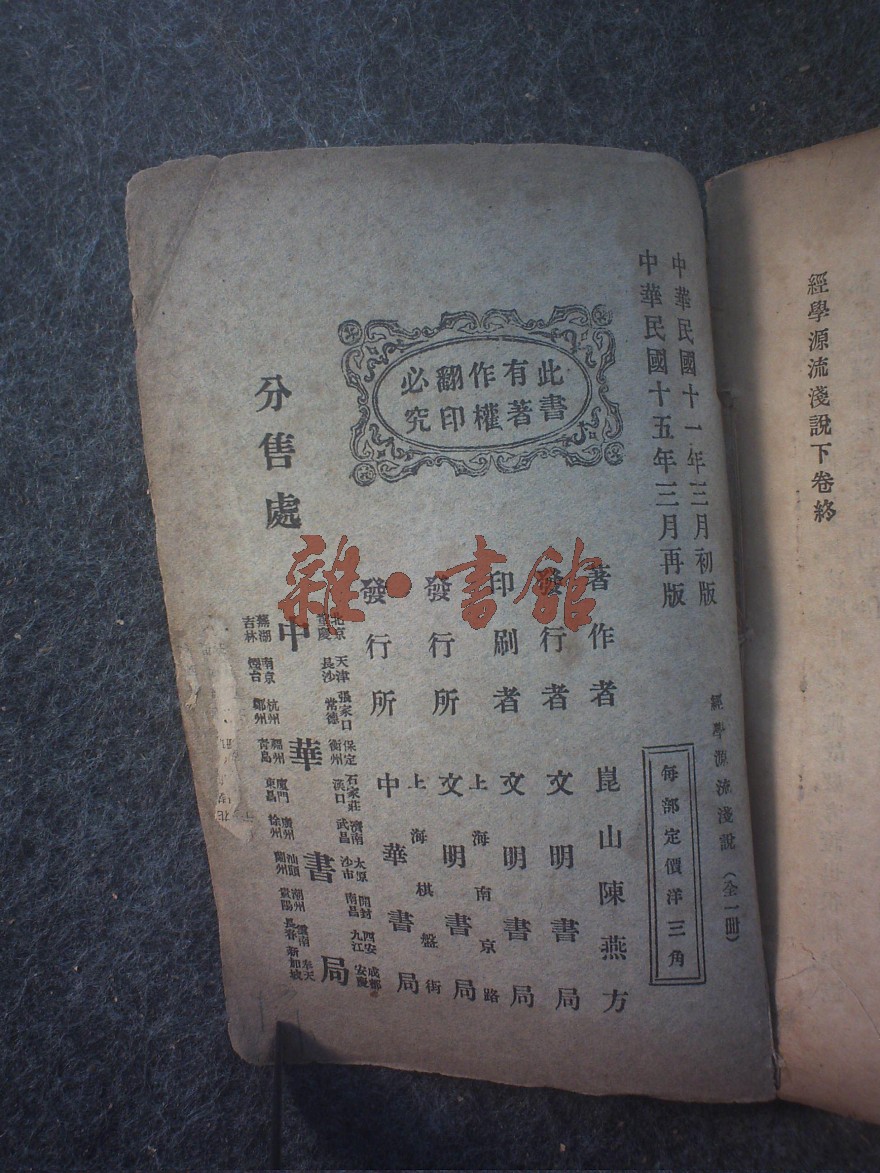 經學源流淺說下卷終
中華民國十一年三月初版
中華民國十五年三月再版
經學源流淺說（全一冊）
每部定價洋三角
此書
有著
作權
翻印
必究
著作者 崑山陳燕方
發行者 文明書局
印刷者 文明書局
上海南京路
發行所 文明書局
上海棋盤街
發行所 中華書局
分售處
中華書局
北京 天津 張家口 保定 石家莊 濟南 太原 開封 西安 成都
重慶 長沙 常德 衡州 漢口 武昌 沙市 南昌 九江 安慶
蕪湖 南京 杭州 福州 廈門 廣州 汕頭 潮州 雲南 奉天
吉林 煙台 鄭州 青島 東昌 徐州 蘭州 貴陽 長春 新加坡
雜·書館